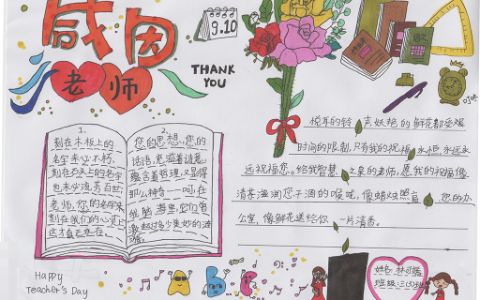 感恩
老师
9.10
THANK
YOU
1.
刻在木板上的
名字未必不朽,
刻在石头上的名字
也未必流芳百世;
老师,您的名字
刻在我们的心灵上,
这才真正存在。
2.
您的思想,您的
话语,充溢着诗意,
蕴含着哲理,又显得
那么神奇——呵,在
我脑海里,它们曾
激起过多少美好的
涟漪
悦耳的铃 言妖艳的鲜花都受难
时间的限制,只有我的祝福永恒永远永
远祝福您。给我智慧 之泉的老师,愿我的祝福像
清茶滋润您干涸的喉咙,像蜡烛照亮 您的办
公室,像鲜花送给你 一片清香。
Happy
Teacher's Day
A B C
姓名:林可
班级:三(4)班